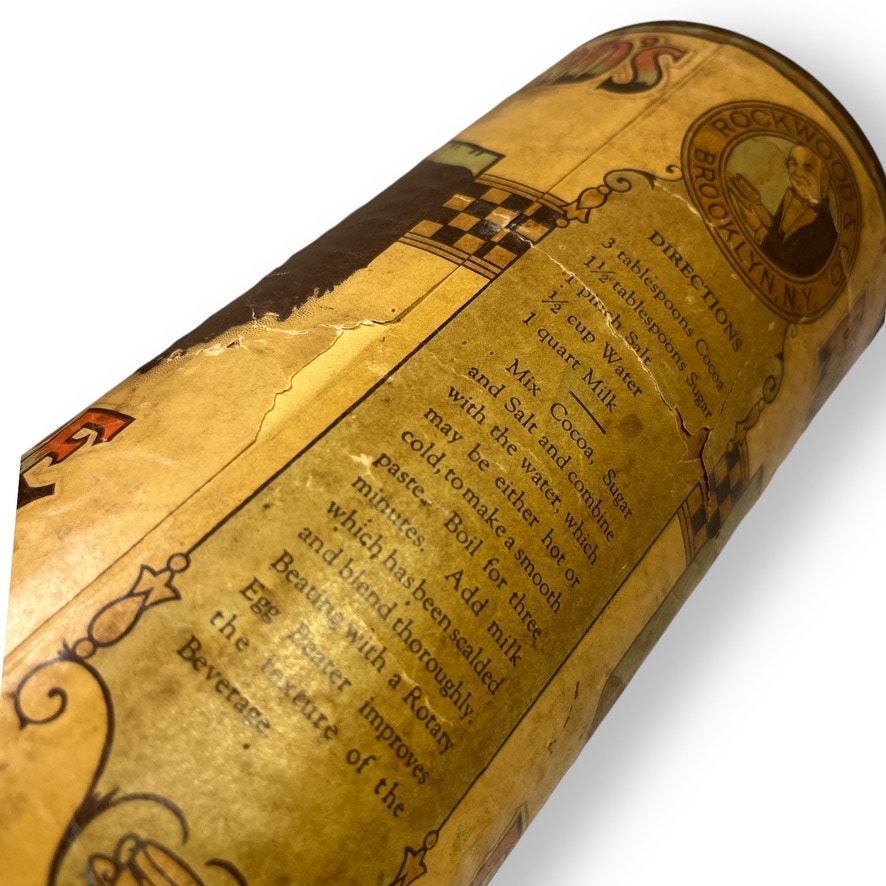 D'S
ROCKWOOD & CO
BROOKLYN, N.Y.
DIRECTIONS
3 tablespoons Cocoa
1½ tablespoons Sugar
1 pinch Salt
½ cup Water
1 quart Milk
Mix Cocoa, Sugar
and Salt and combine
with the water, which
may be either hot or
cold, to make a smooth
paste. Boil for three
minutes. Add milk
which has been scalded
and blend thoroughly.
Beating with a Rotary
Egg Beater improves
the texture of the
Beverage.